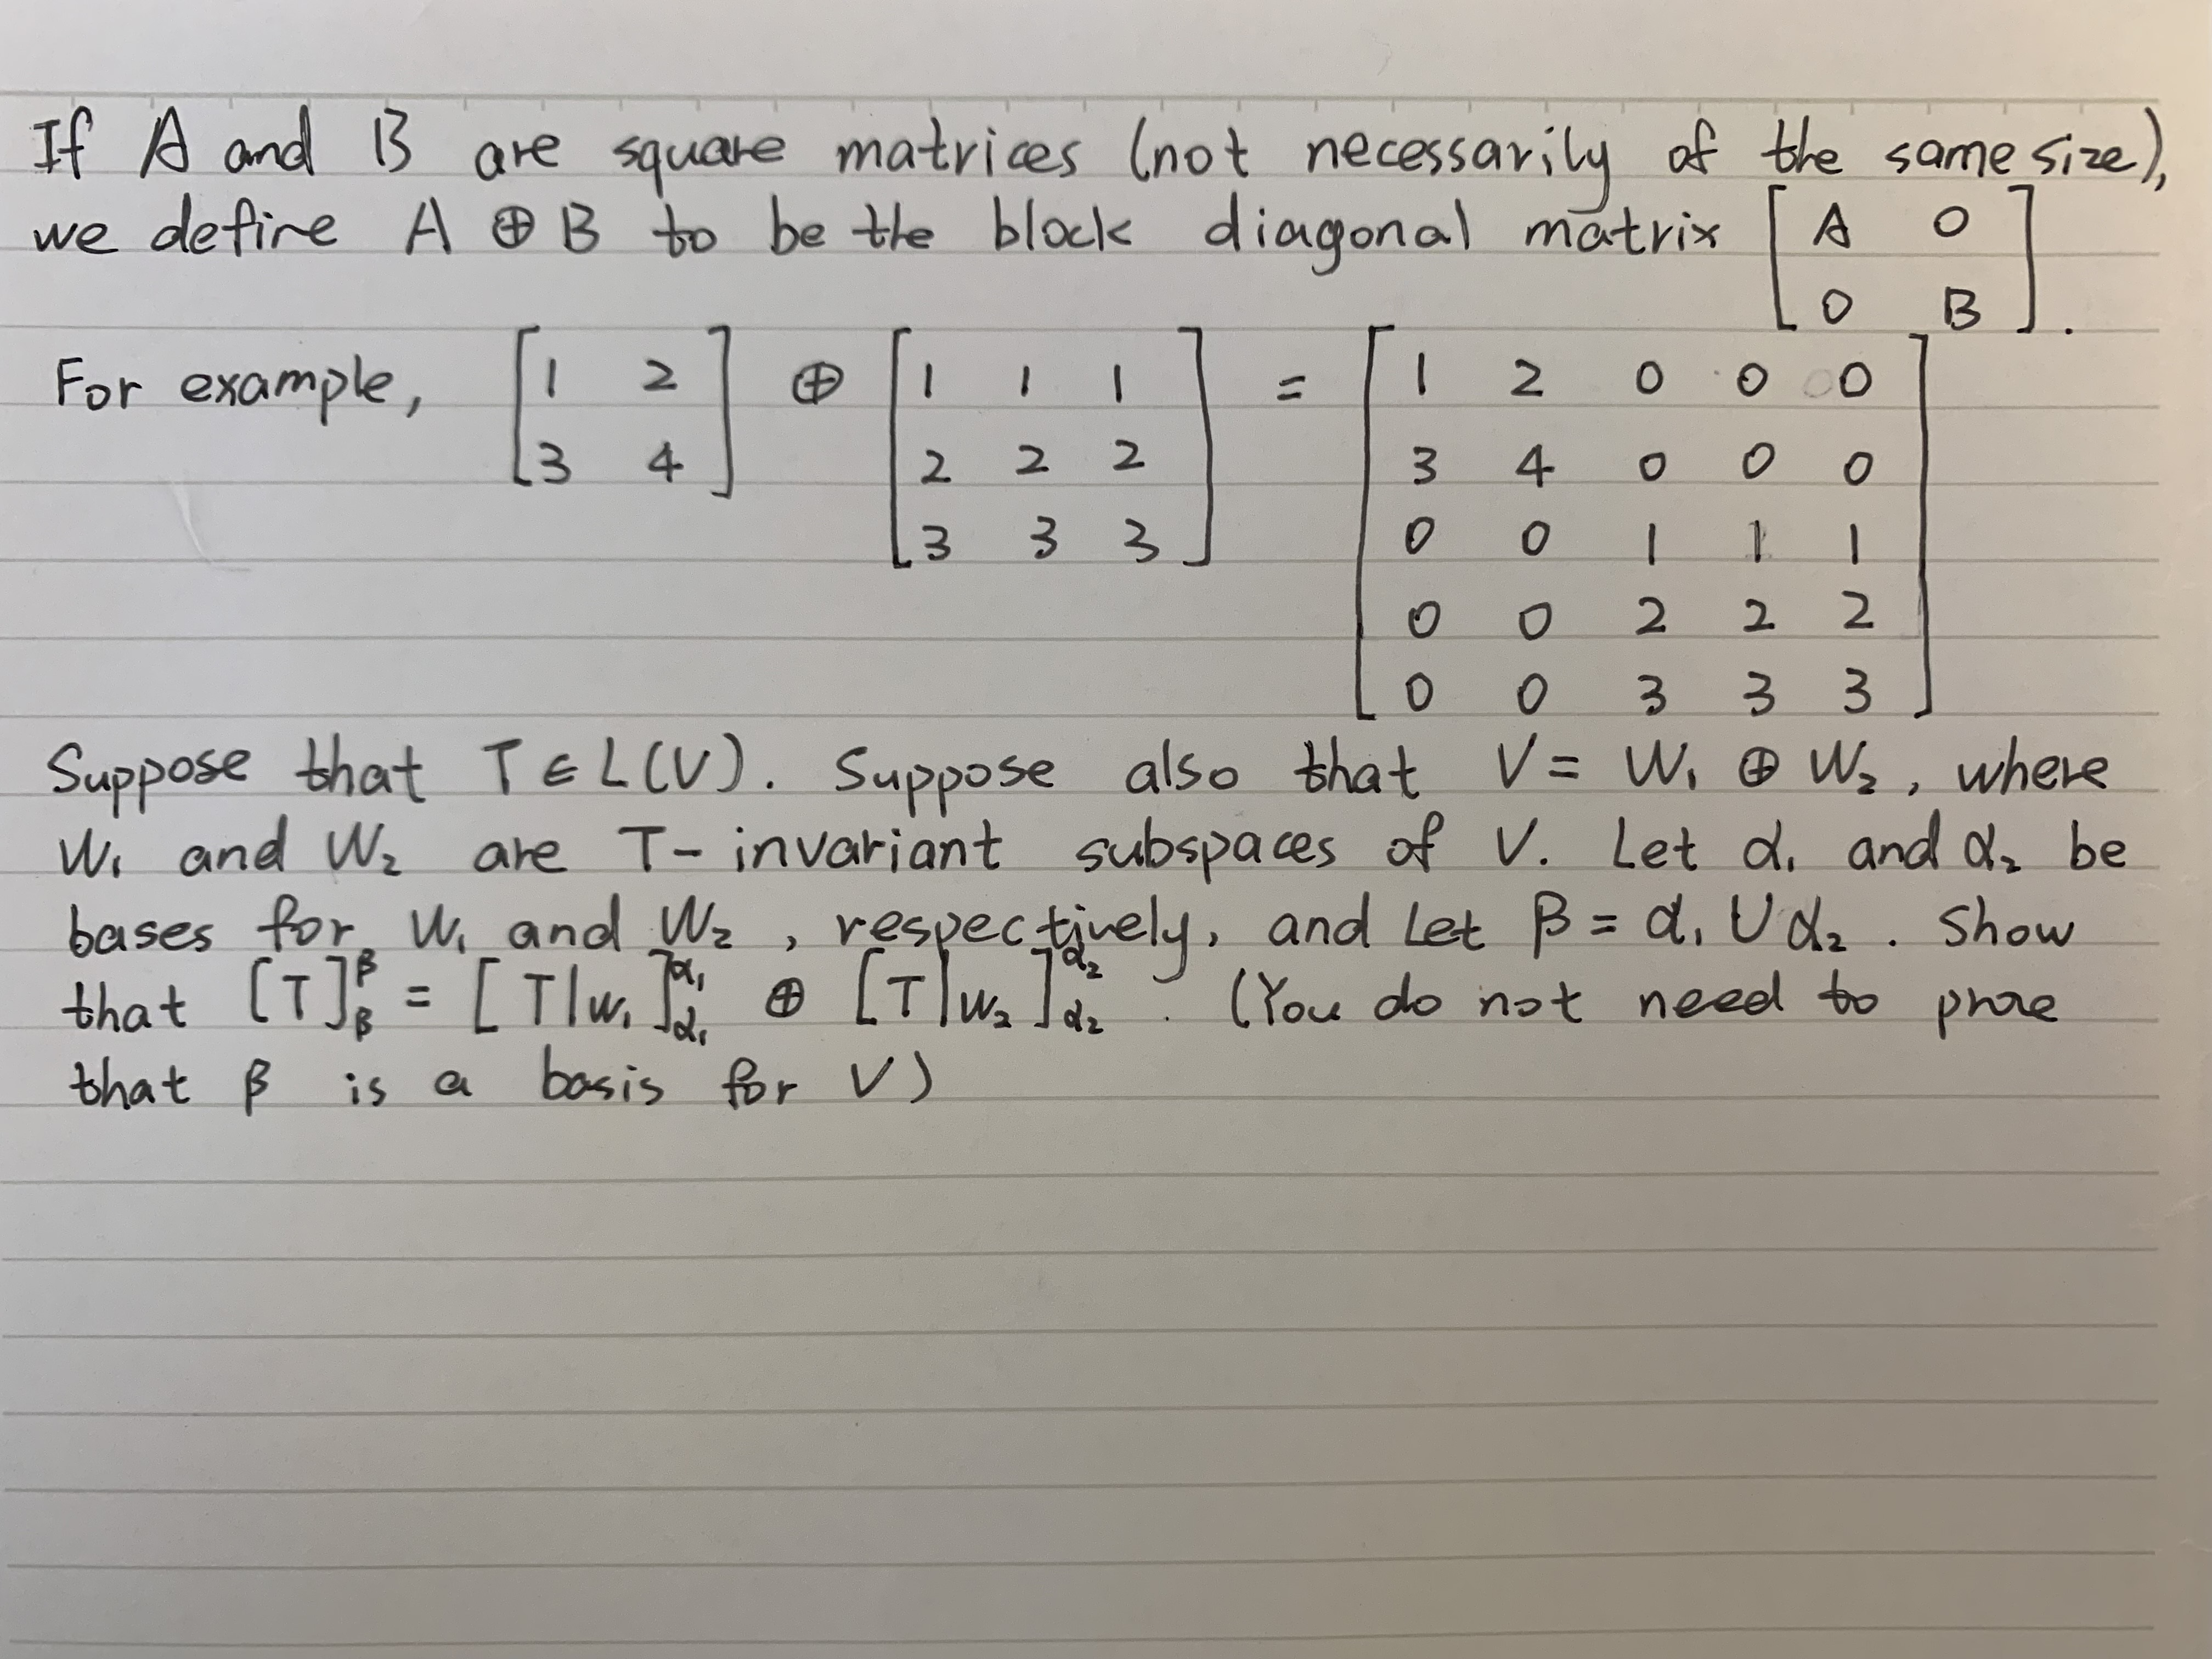 If A and B are square matrices (not necessarily of the same size),
we define A ⊕ B to be the block diagonal matrix [A 0
0 B].
For example, [1 2 ⊕ [1 1 1 = [1 2 0 0 0
3 4] 2 2 2 3 4 0 0 0
3 3 3] 0 0 1 1 1
0 0 2 2 2
0 0 3 3 3]
Suppose that T ∈ L(V). Suppose also that V = W₁ ⊕ W₂, where
W₁ and W₂ are T-invariant subspaces of V. Let α₁ and α₂ be
bases for W₁ and W₂, respectively, and Let β = α₁ ∪ α₂. Show
that [T]_β^β = [T|w₁]_α₁^α₁ ⊕ [T|w₂]_α₂^α₂. (You do not need to prove
that β is a basis for V)